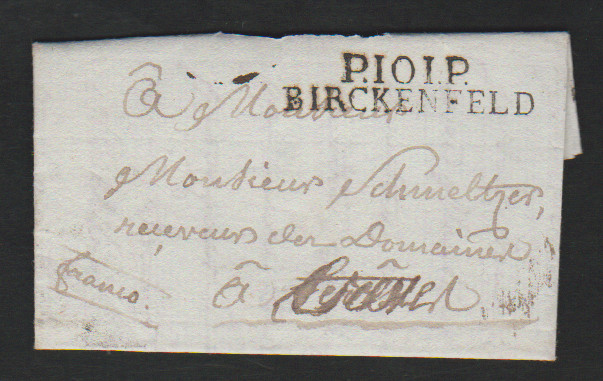 P.101.P.
BIRCKENFELD
â Monsieur
Monsieur Schmeltzer,
reçeveur des Domaines
franco.
â